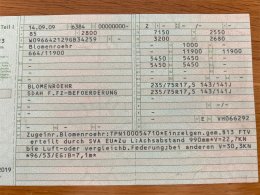 Teil I
14.09.09 6384 00000000- 2 -
85 2800 7150 2550
W09664212G9B34259 3200 2680
Blomenroehr - 1000 -
664/11900 - 11900 11900
5450 5450 -
5450 5450 -
BLOMENROEHR 235/75R17,5 143/141J
SDAH F.FZ-BEFOERDERUNG 235/75R17,5 143/141J
VH066292
Zugeinr.Blomenroehr:TPN10005471O*Einzelgen.gem.§13 FTV
erteilt durch SVA EU*Zu L:Achsabstand 990mm*V=22,7KN
Die Luft-oder vergleichb.Federung;bei anderen V=30,3KN
*96/53/EG:B-7,1m*
2019